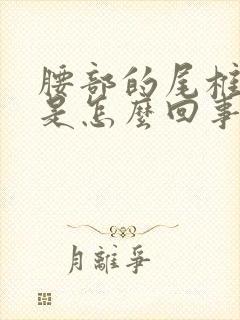 腰部的尾椎
是怎麼回事
月離爭